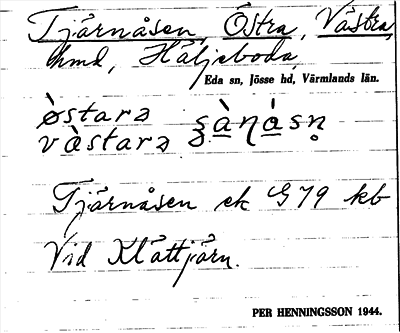 Tjärnåsen, Östra, Västra,
hmd, Häljeboda,
Eda sn, Jösse hd, Värmlands län.
ø̀starə
vàstarə
Tjärnåsen ek G79 kb
Vid Klättjärn.
PER HENNINGSSON 1944.